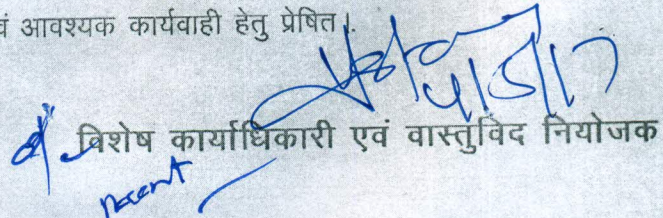 वं आवश्यक कार्यवाही हेतु प्रेषित।
विशेष कार्याधिकारी एवं वास्तुविद नियोजक